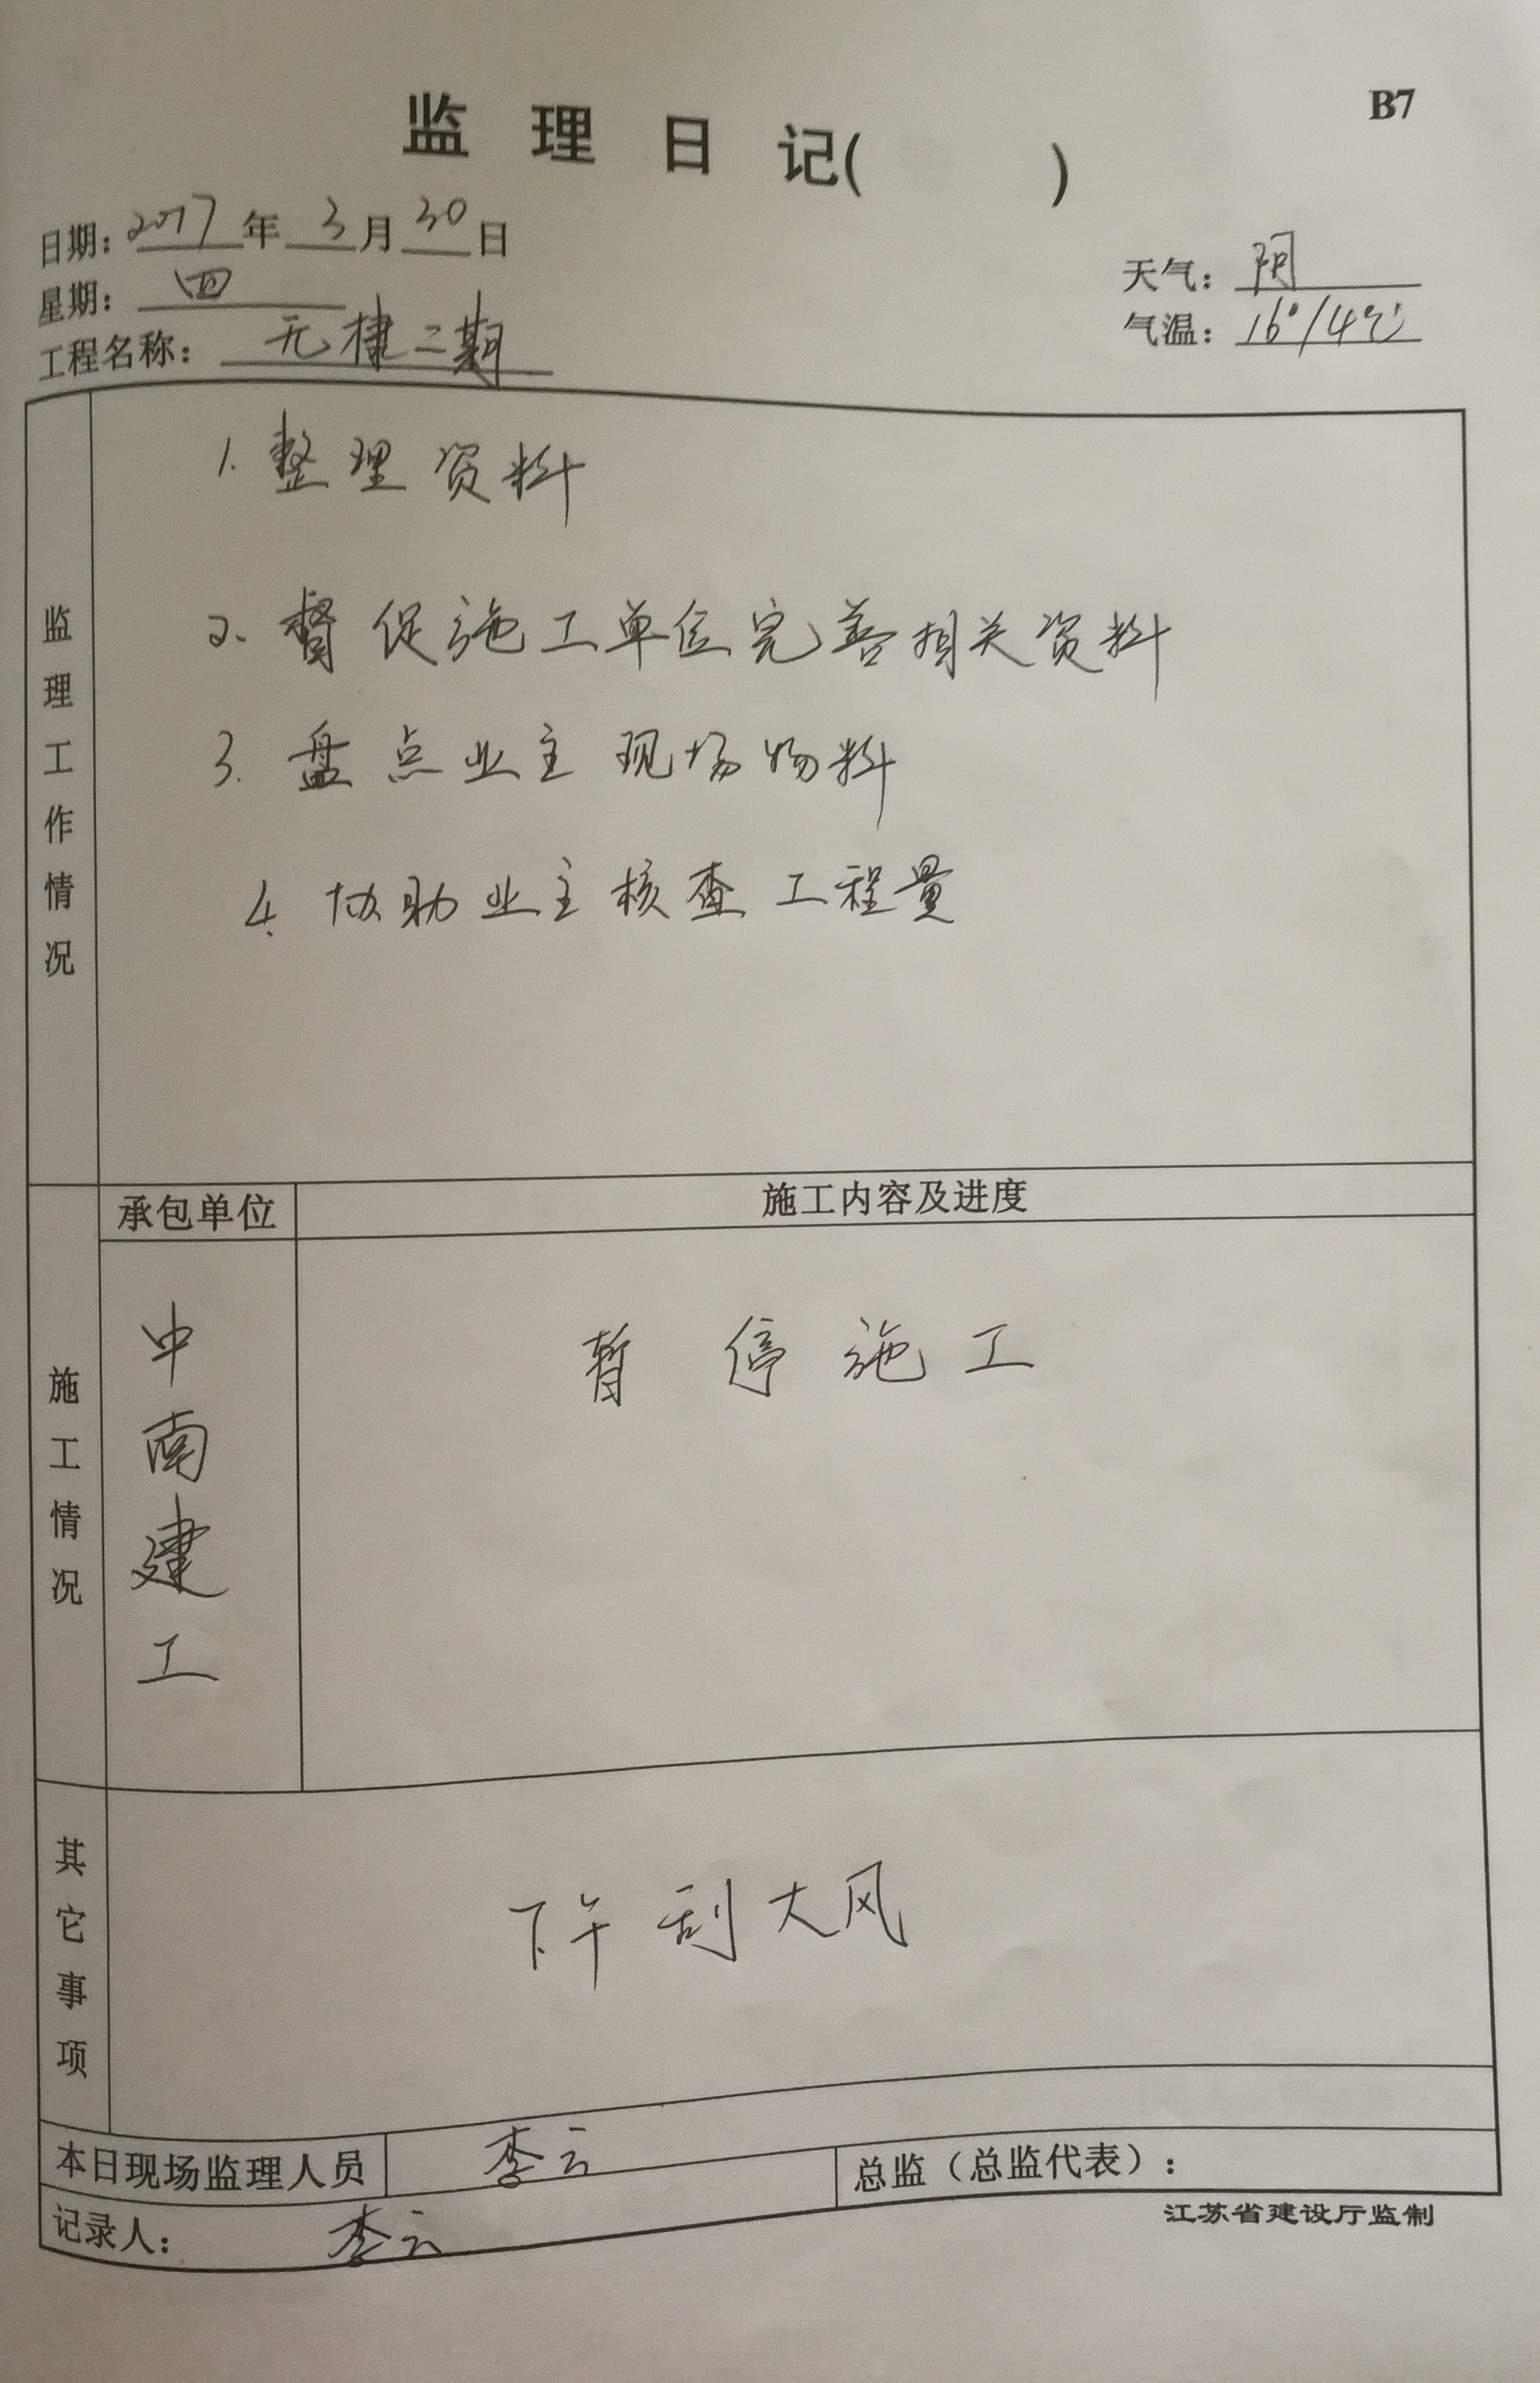 B7
监理日记( )
日期：2017年3月30日
星期：四
天气：阴
工程名称：无棣二期
气温：16°/4℃
监理工作情况
1. 整理资料
2. 督促施工单位完善相关资料
3. 盘点业主现场物料
4. 协助业主核查工程量
施工情况
承包单位 施工内容及进度
中南建工
暂停施工
其它事项
下午刮大风
本日现场监理人员 李云
总监（总监代表）：
记录人： 李云
江苏省建设厅监制